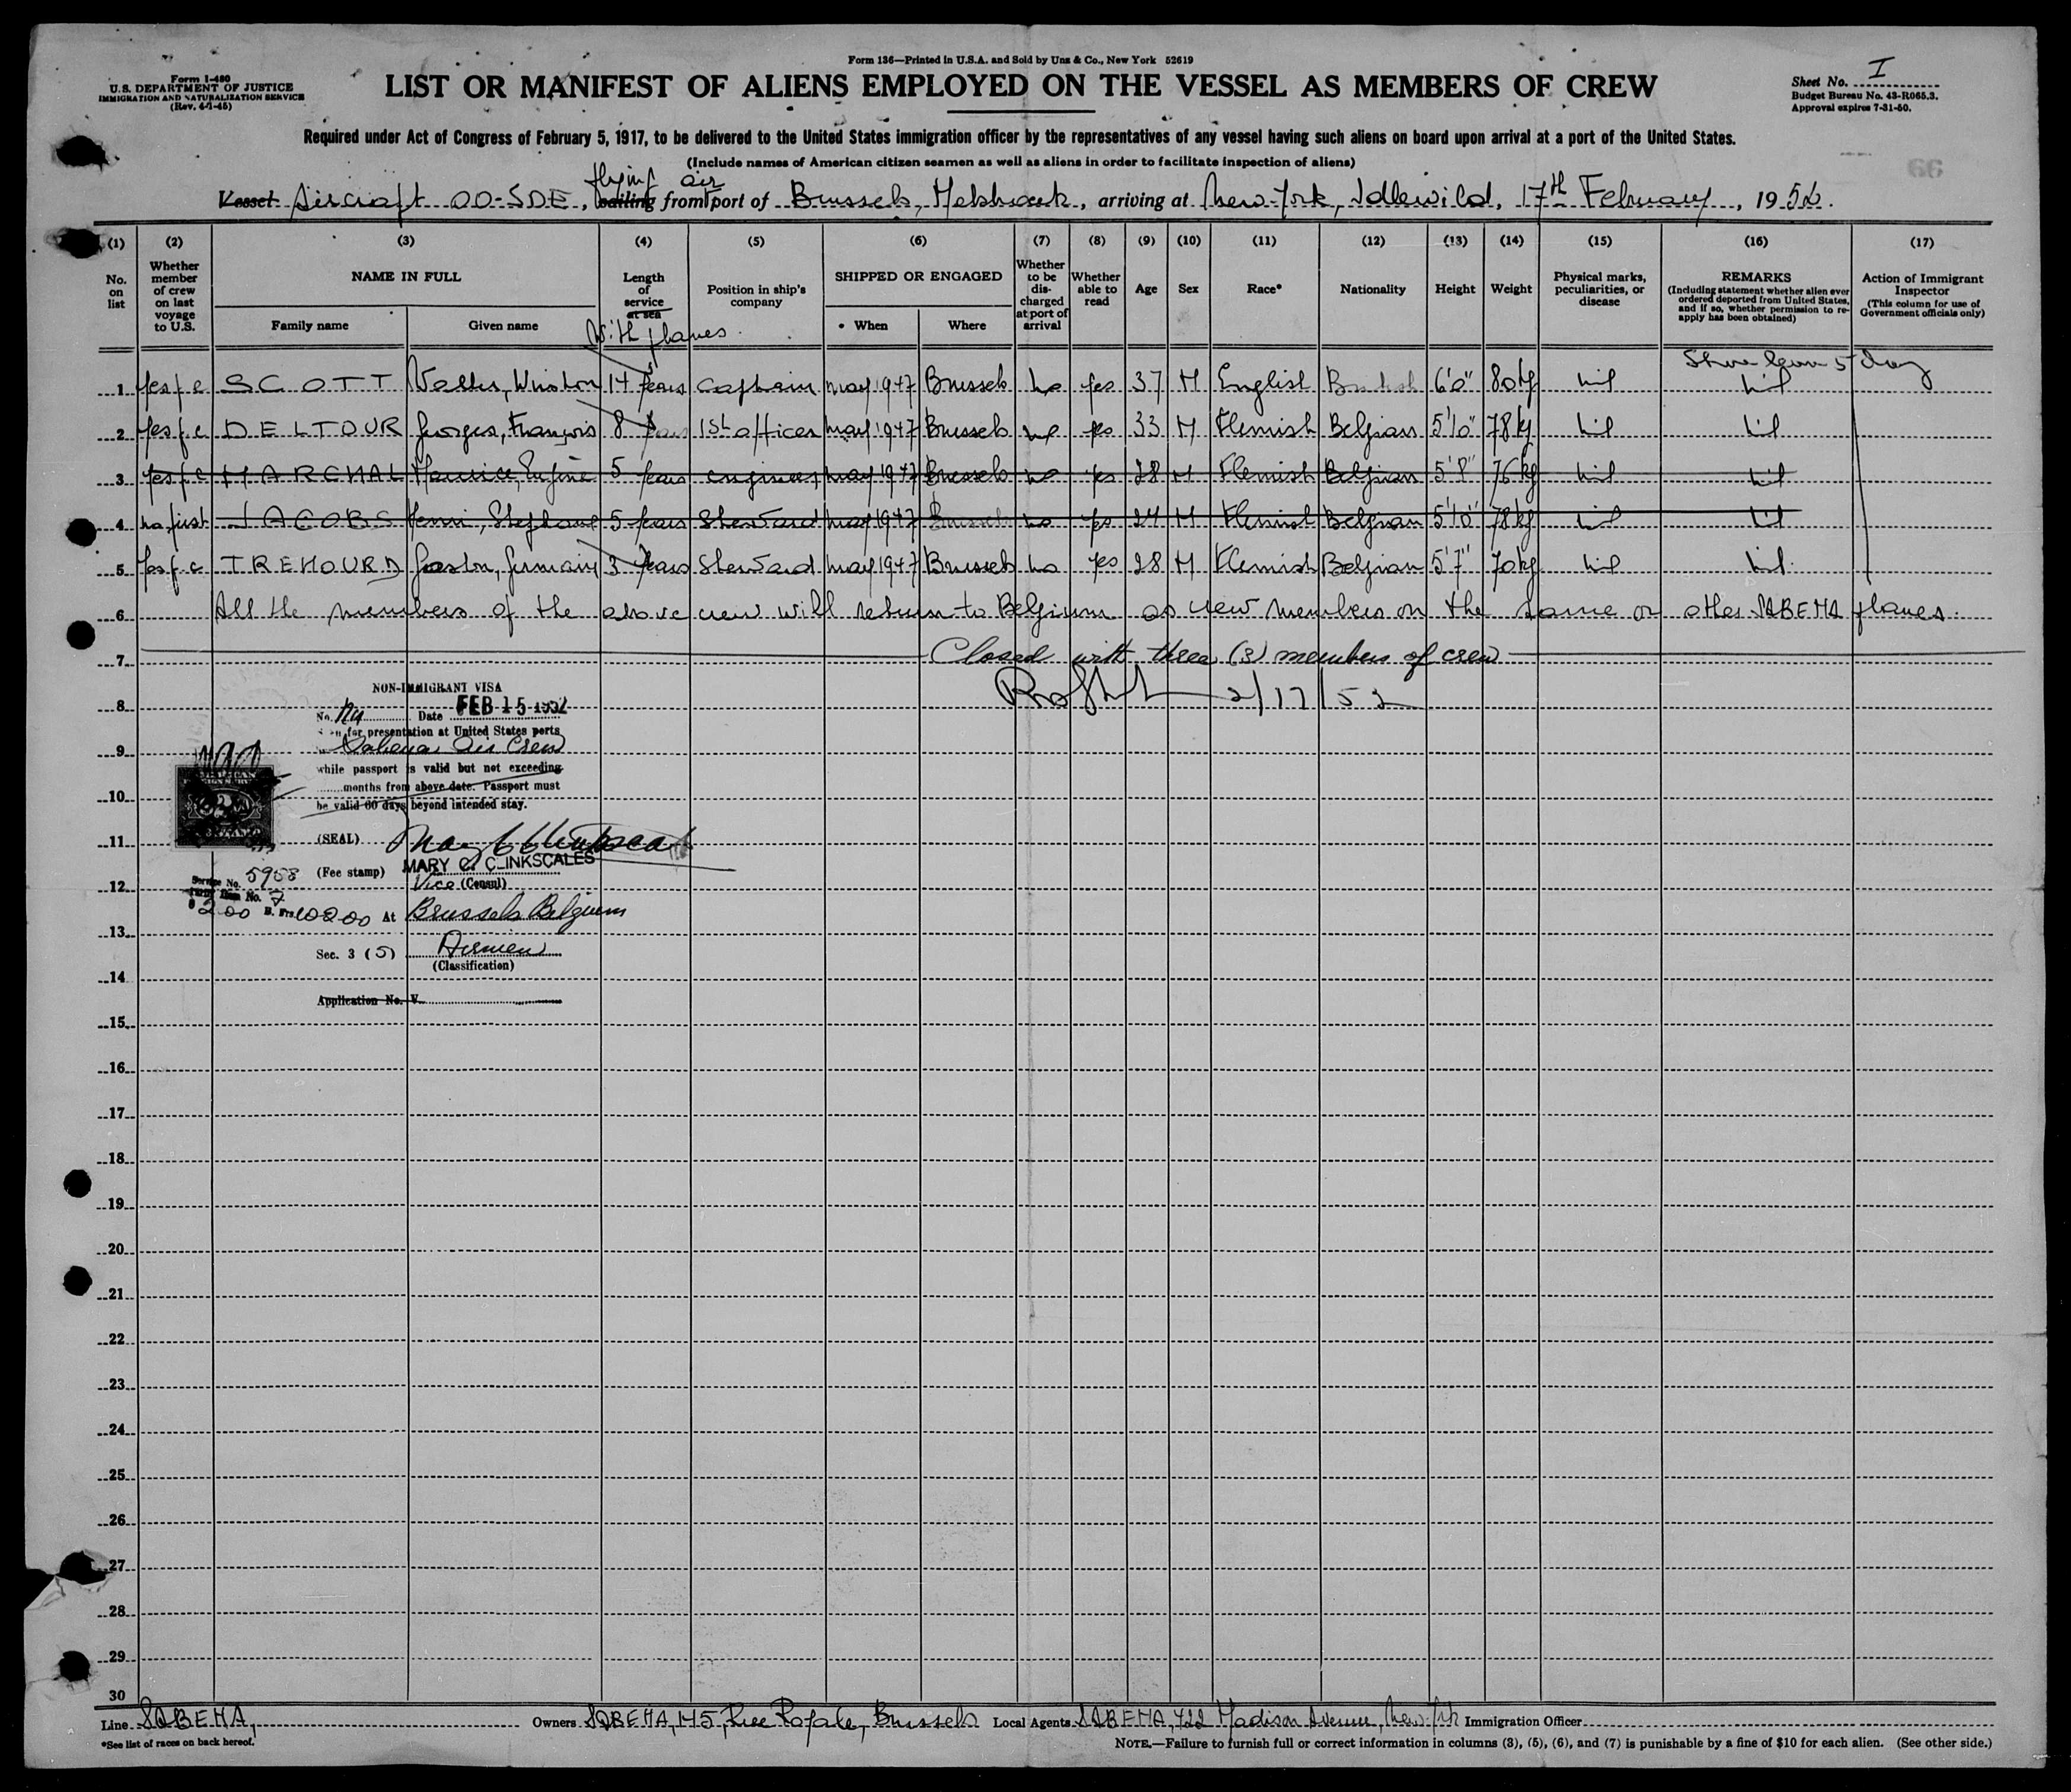 Form 136—Printed in U.S.A. and Sold by Unz & Co., New York 52619
Form I-480
U.S. DEPARTMENT OF JUSTICE
IMMIGRATION AND NATURALIZATION SERVICE
(Rev. 4-1-45)
LIST OR MANIFEST OF ALIENS EMPLOYED ON THE VESSEL AS MEMBERS OF CREW
Sheet No. I
Budget Bureau No. 43-R065.3.
Approval expires 7-31-50.
Required under Act of Congress of February 5, 1917, to be delivered to the United States immigration officer by the representatives of any vessel having such aliens on board upon arrival at a port of the United States.
(Include names of American citizen seamen as well as aliens in order to facilitate inspection of aliens)
flying air
Vessel Aircraft OO-SDE, sailing from port of Brussels, Melsbroek, arriving at New-York, Idlewild, 17th February, 1952.
(1) (2) (3) (4) (5) (6) (7) (8) (9) (10) (11) (12) (13) (14) (15) (16) (17)
No. on list
Whether member of crew on last voyage to U.S.
NAME IN FULL
Family name
Given name
Length of service at sea
With planes.
Position in ship's company
SHIPPED OR ENGAGED
When
Where
Whether to be discharged at port of arrival
Whether able to read
Age
Sex
Race*
Nationality
Height
Weight
Physical marks, peculiarities, or disease
REMARKS
(Including statement whether alien ever ordered deported from United States, and if so, whether permission to reapply has been obtained)
Action of Immigrant Inspector
(This column for use of Government officials only)
1 Yes f.c SCOTT Walter, Winston 14 years captain may 1947 Brussels no yes 37 M English British 6'0" 80kg nil nil
2 Yes f.c DELTOUR Georges, François 8 years 1st officer may 1947 Brussels no yes 33 M Flemish Belgian 5'10" 78kg nil nil
3 Yes f.c MARECHAL Maurice, Eugène 5 years engineer may 1947 Brussels no yes 28 M Flemish Belgian 5'8" 76kg nil nil
4 no first JACOBS Henri, Stephane 5 years Steward may 1947 Brussels no yes 24 M Flemish Belgian 5'10" 78kg nil nil
5 Yes f.c TREMOURD Gaston, Germain 3 years Steward may 1947 Brussels no yes 28 M Flemish Belgian 5'7" 70kg nil nil.
6 All the members of the above crew will return to Belgium as crew members on the same or other SABENA planes.
7 Closed with three (3) members of crew
8 2/17/52
NON-IMMIGRANT VISA
No. Date FEB 15 1952
for presentation at United States ports
Sabena Air Crew
while passport is valid but not exceeding
months from above date. Passport must
be valid 60 days beyond intended stay.
(SEAL)
MARY C. C INKSCALES
(Fee stamp)
Vice (Consul)
Service No. 5958
Tariff Item No. 7
$ 2.00 B. Frs. 100.00 At Brussels Belgium
Sec. 3 (5) Airmen
(Classification)
Application No. V
9
10
11
12
13
14
15
16
17
18
19
20
21
22
23
24
25
26
27
28
29
30
Line SABENA, Owners SABENA, 145, Rue Royale, Brussels Local Agents SABENA, 422 Madison Avenue, New-York Immigration Officer
*See list of races on back hereof.
NOTE.—Failure to furnish full or correct information in columns (3), (5), (6), and (7) is punishable by a fine of $10 for each alien. (See other side.)